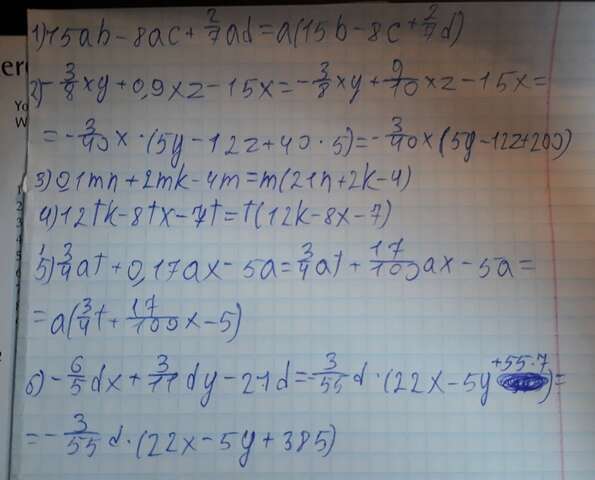 1) 15ab - 8ac + 2/7 ad = a(15b - 8c + 2/7 d)
2) -3/8 xy + 0,9xz - 15x = -3/8 xy + 9/10 xz - 15x =
= -3/40 x · (5y - 12z + 40 · 5) = -3/40 x (5y - 12z + 200)
3) 21mn + 2mk - 4m = m(21n + 2k - 4)
4) 12tk - 8tx - 7t = t(12k - 8x - 7)
5) 3/4 at + 0,17ax - 5a = 3/4 at + 17/100 ax - 5a =
= a(3/4 t + 17/100 x - 5)
6) -6/5 dx + 3/11 dy - 21d = -3/55 d · (22x - 5y + 55·7) =
= -3/55 d · (22x - 5y + 385)